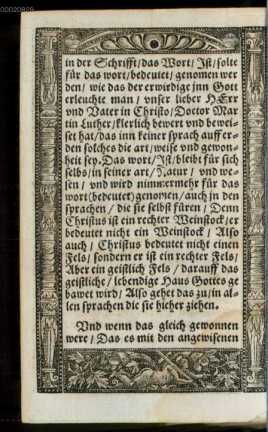 00020829
in der Schrifft/das Wort/ Jst/solte
für das wort/bedeutet/genomen wer
den/ wie das der erwirdige jnn Gott
erleuchte man/ vnser lieber HErr
vnd Vater in Christo/Doctor Mar
tin Luther/klerlich bewert vnd bewei-
set hat/das inn keiner sprach auff er-
den solches die art/weise vnd gewon-
heit sey. Das wort/Jst/bleibt für sich
selbs/in seiner art/Natur/ vnd we-
sen/ vnd wird nimmermehr für das
wort(bedeutet)genomen/auch jn den
sprachen/ die sie selbst füren/ Denn
Christus ist ein rechter Weinstock/er
bedeutet nicht ein Weinstock/ Also
auch/ Christus bedeutet nicht einen
Fels/ sondern er ist ein rechter Fels/
Aber ein geistlich Fels/ darauff das
geistliche/ lebendige Haus Gottes ge
bawet wird/ Also gehet das zu/in al-
len sprachen die sie hieher ziehen.
Vnd wenn das gleich gewonnen
were/ Das es mit den angewisenen